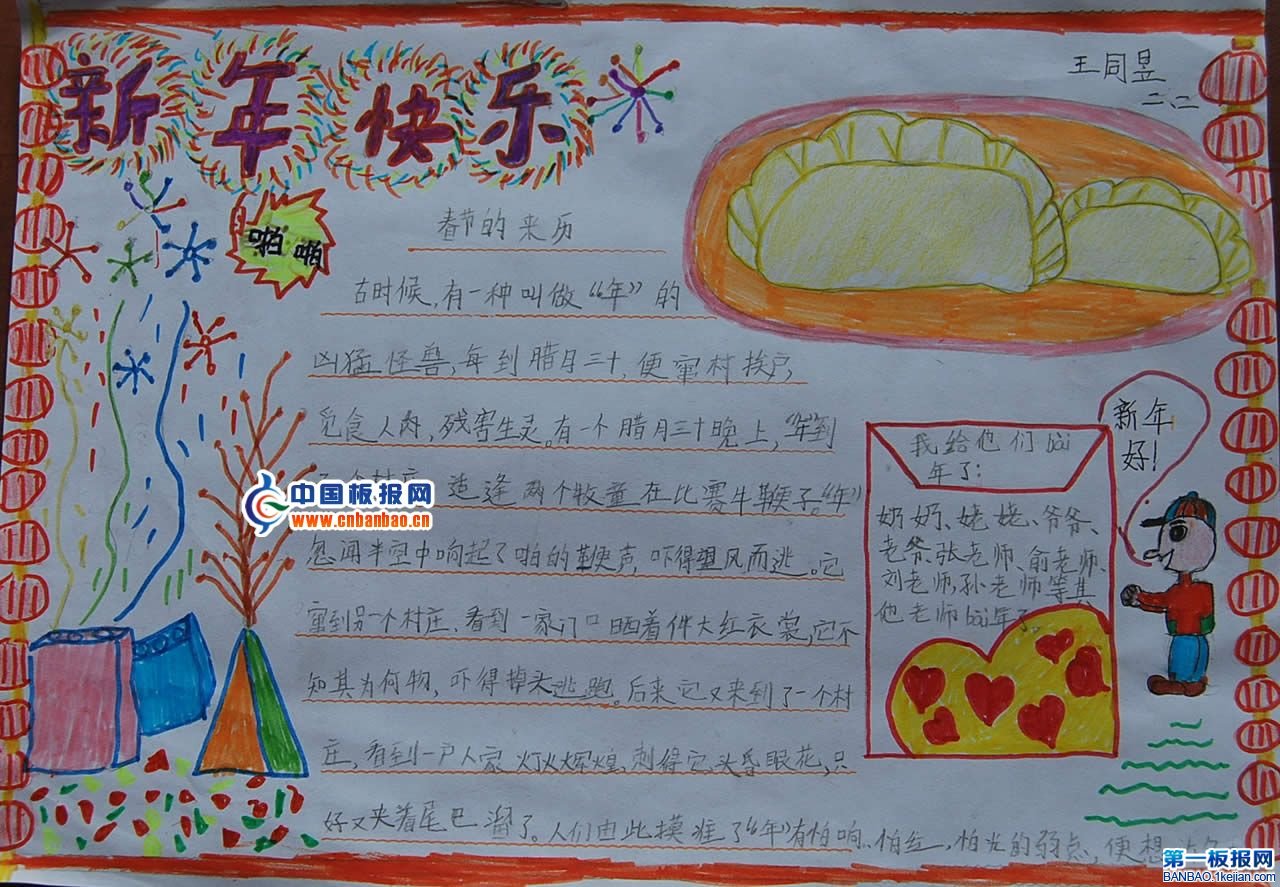 新年快乐
王同昱
二、二
春节的来历
古时候,有一种叫做“年”的
凶猛怪兽,每到腊月三十,便窜村挨户,
觅食人肉,残害生灵。有一个腊月三十晚上,“年”到
适逢两个牧童在比赛牛鞭子。“年”
忽闻半空中响起了啪的鞭声,吓得望风而逃。它
窜到另一个村庄、看到一家门口晒着件大红衣裳,它不
知其为何物,吓得掉头逃跑。后来它又来到了一个村
庄,看到一户人家灯火辉煌、刺得它头昏眼花,只
好又夹着尾巴溜了。人们由此摸准了“年”有怕响、怕红,怕光的弱点,便想
我给他们bài
年了:
奶奶、姥姥、爷爷、
老爷、张老师、俞老师、
刘老师,孙老师等其
他老师bài年了。
新年
好!
中国板报网
www.cnbanbao.cn
第一板报网
BANBAO.1kejian.com